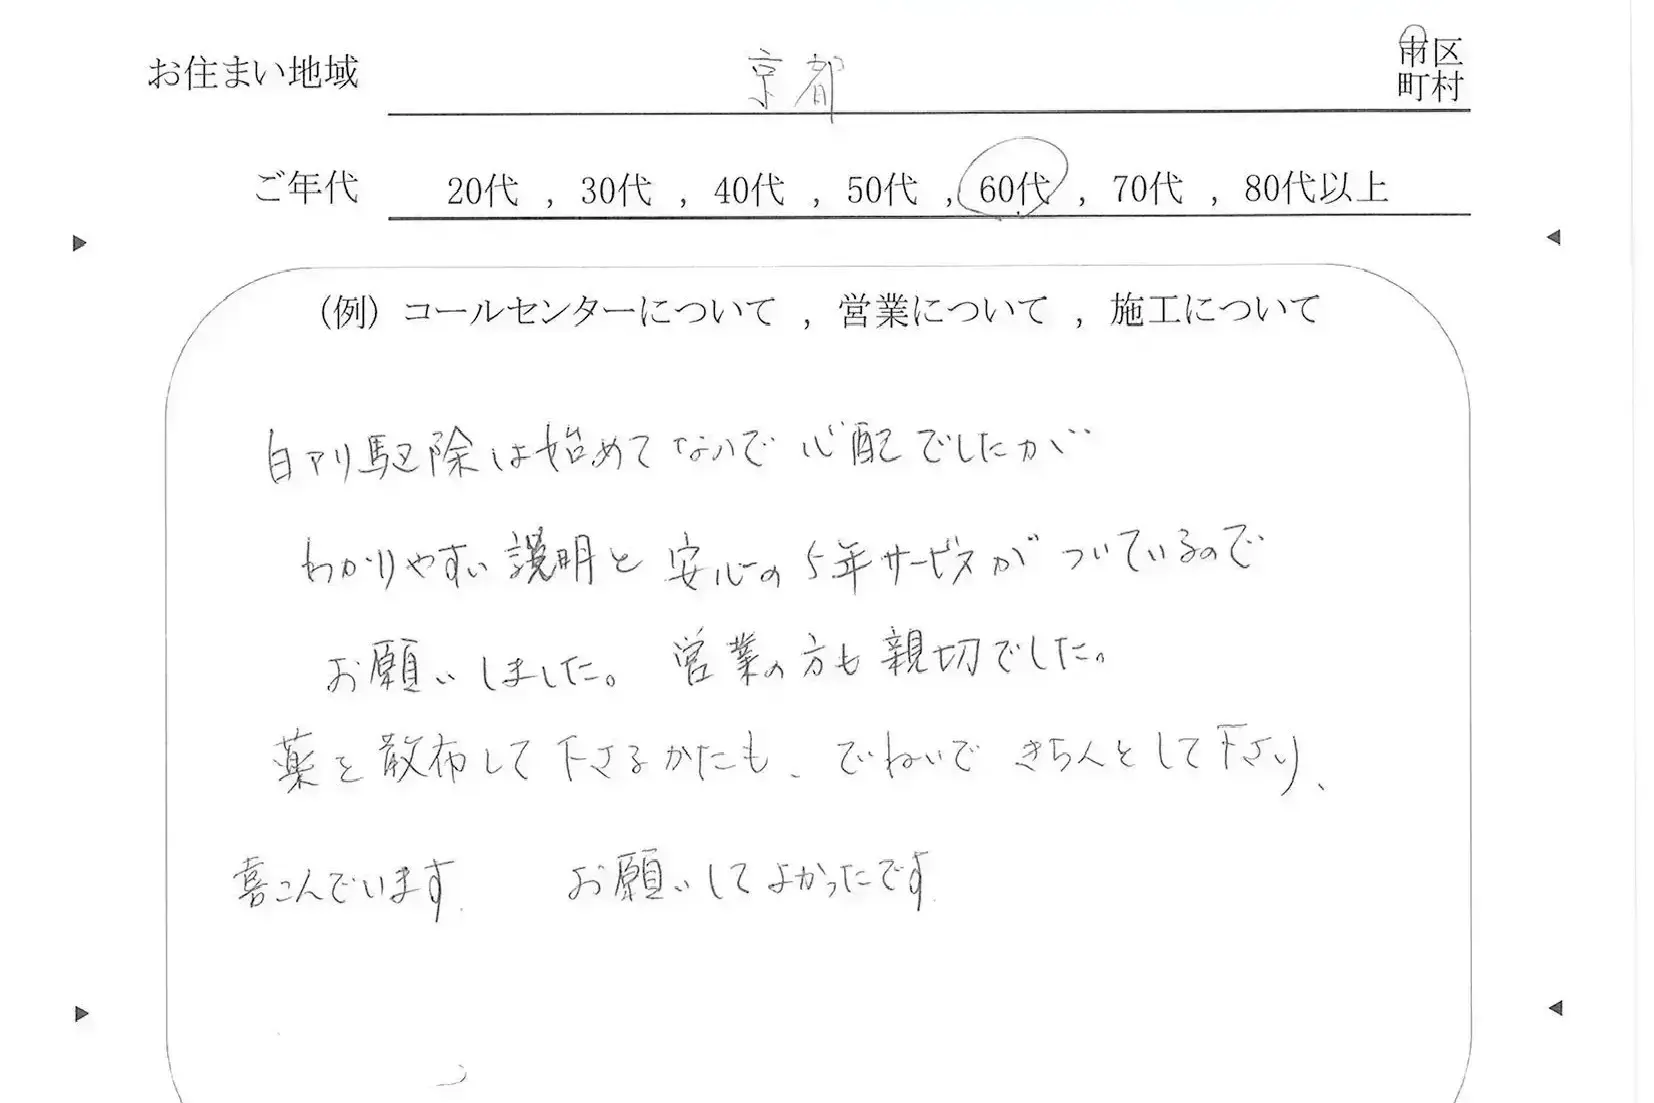 お住まい地域 京都 市区
町村
ご年代 20代 , 30代 , 40代 , 50代 , 60代 , 70代 , 80代以上
(例) コールセンターについて , 営業について , 施工について
白アリ駆除は始めてなので心配でしたが
わかりやすい説明と安心の5年サービスがついているので
お願いしました。営業の方も親切でした。
薬を散布して下さるかたも、でいねいできちんとして下さり、
喜こんでいます. お願いしてよかったです.